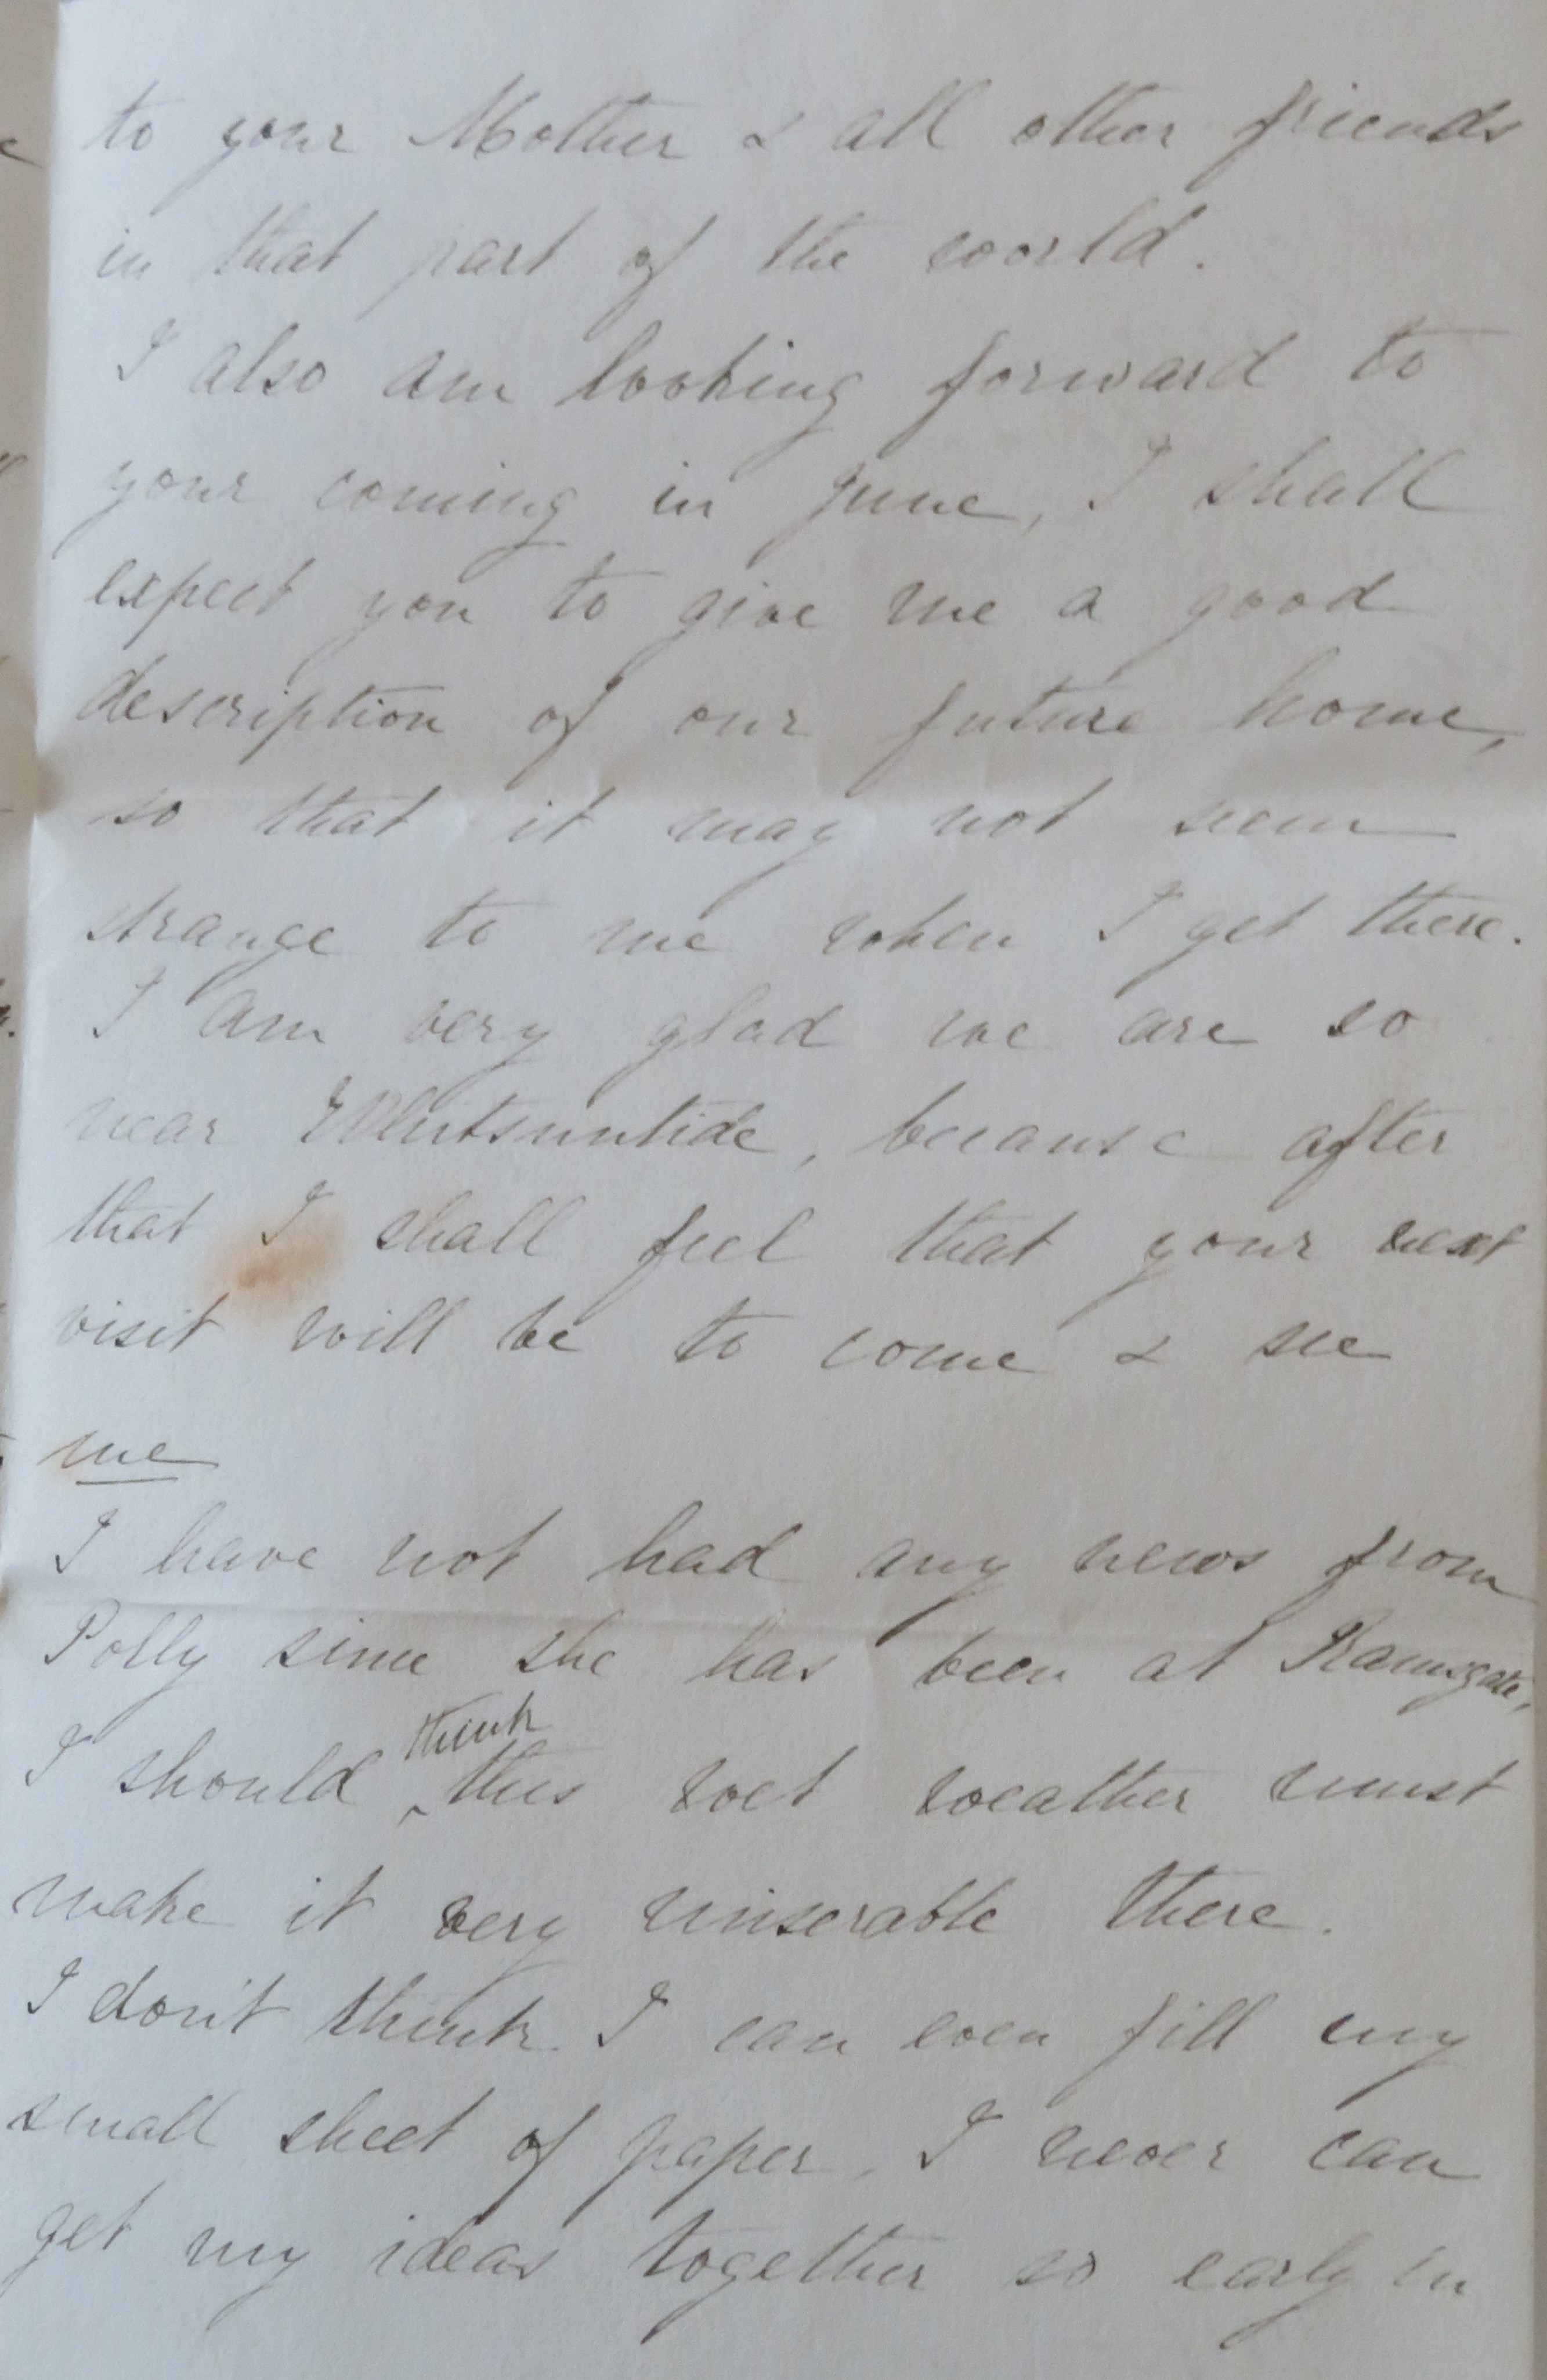 to your Mother & all other friends
in that part of the world.
I also am looking forward to
your coming in June, I shall
expect you to give me a good
description of our future home,
so that it may not seem
strange to me when I get there.
I am very glad we are so
near Whitsuntide, because after
that I shall feel that your next
visit will be to come & see
me
I have not had any news from
Polly since she has been at Ramsgate,
I should think this wet weather must
make it very miserable there.
I don't think I can even fill my
small sheet of paper. I never can
get my ideas together so early in